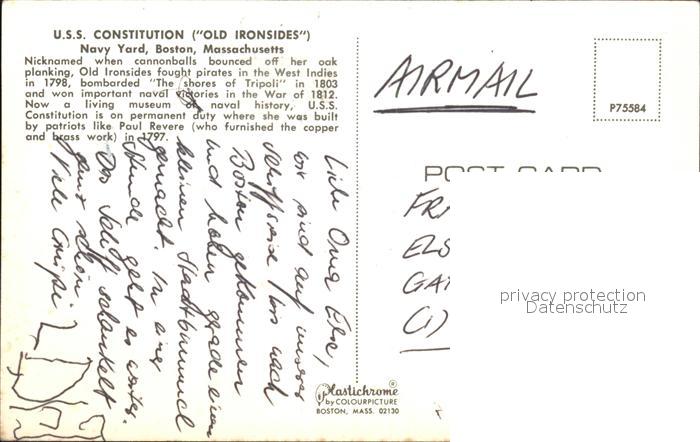 U.S.S. CONSTITUTION ("OLD IRONSIDES")
Navy Yard, Boston, Massachusetts
Nicknamed when cannonballs bounced off her oak
planking, Old Ironsides fought pirates in the West Indies
in 1798, bombarded "The shores of Tripoli" in 1803
and won important naval victories in the War of 1812.
Now a living museum of naval history, U.S.S.
Constitution is on permanent duty where she was built
by patriots like Paul Revere (who furnished the copper
and brass work) in 1797.
Liebe Oma Else,
wir sind auf unserer
Schiffsreise bis nach
Boston gekommen
und haben grade einen
kleinen Stadtbummel
gemacht. In einer
Stunde geht es weiter.
Das Schiff schaukelt
ganz schön.
Viele Grüße
AIRMAIL
P75584
POST CARD
FR
ELS
GA
privacy protection
Datenschutz
Plastichrome®
by COLOURPICTURE
BOSTON, MASS. 02130